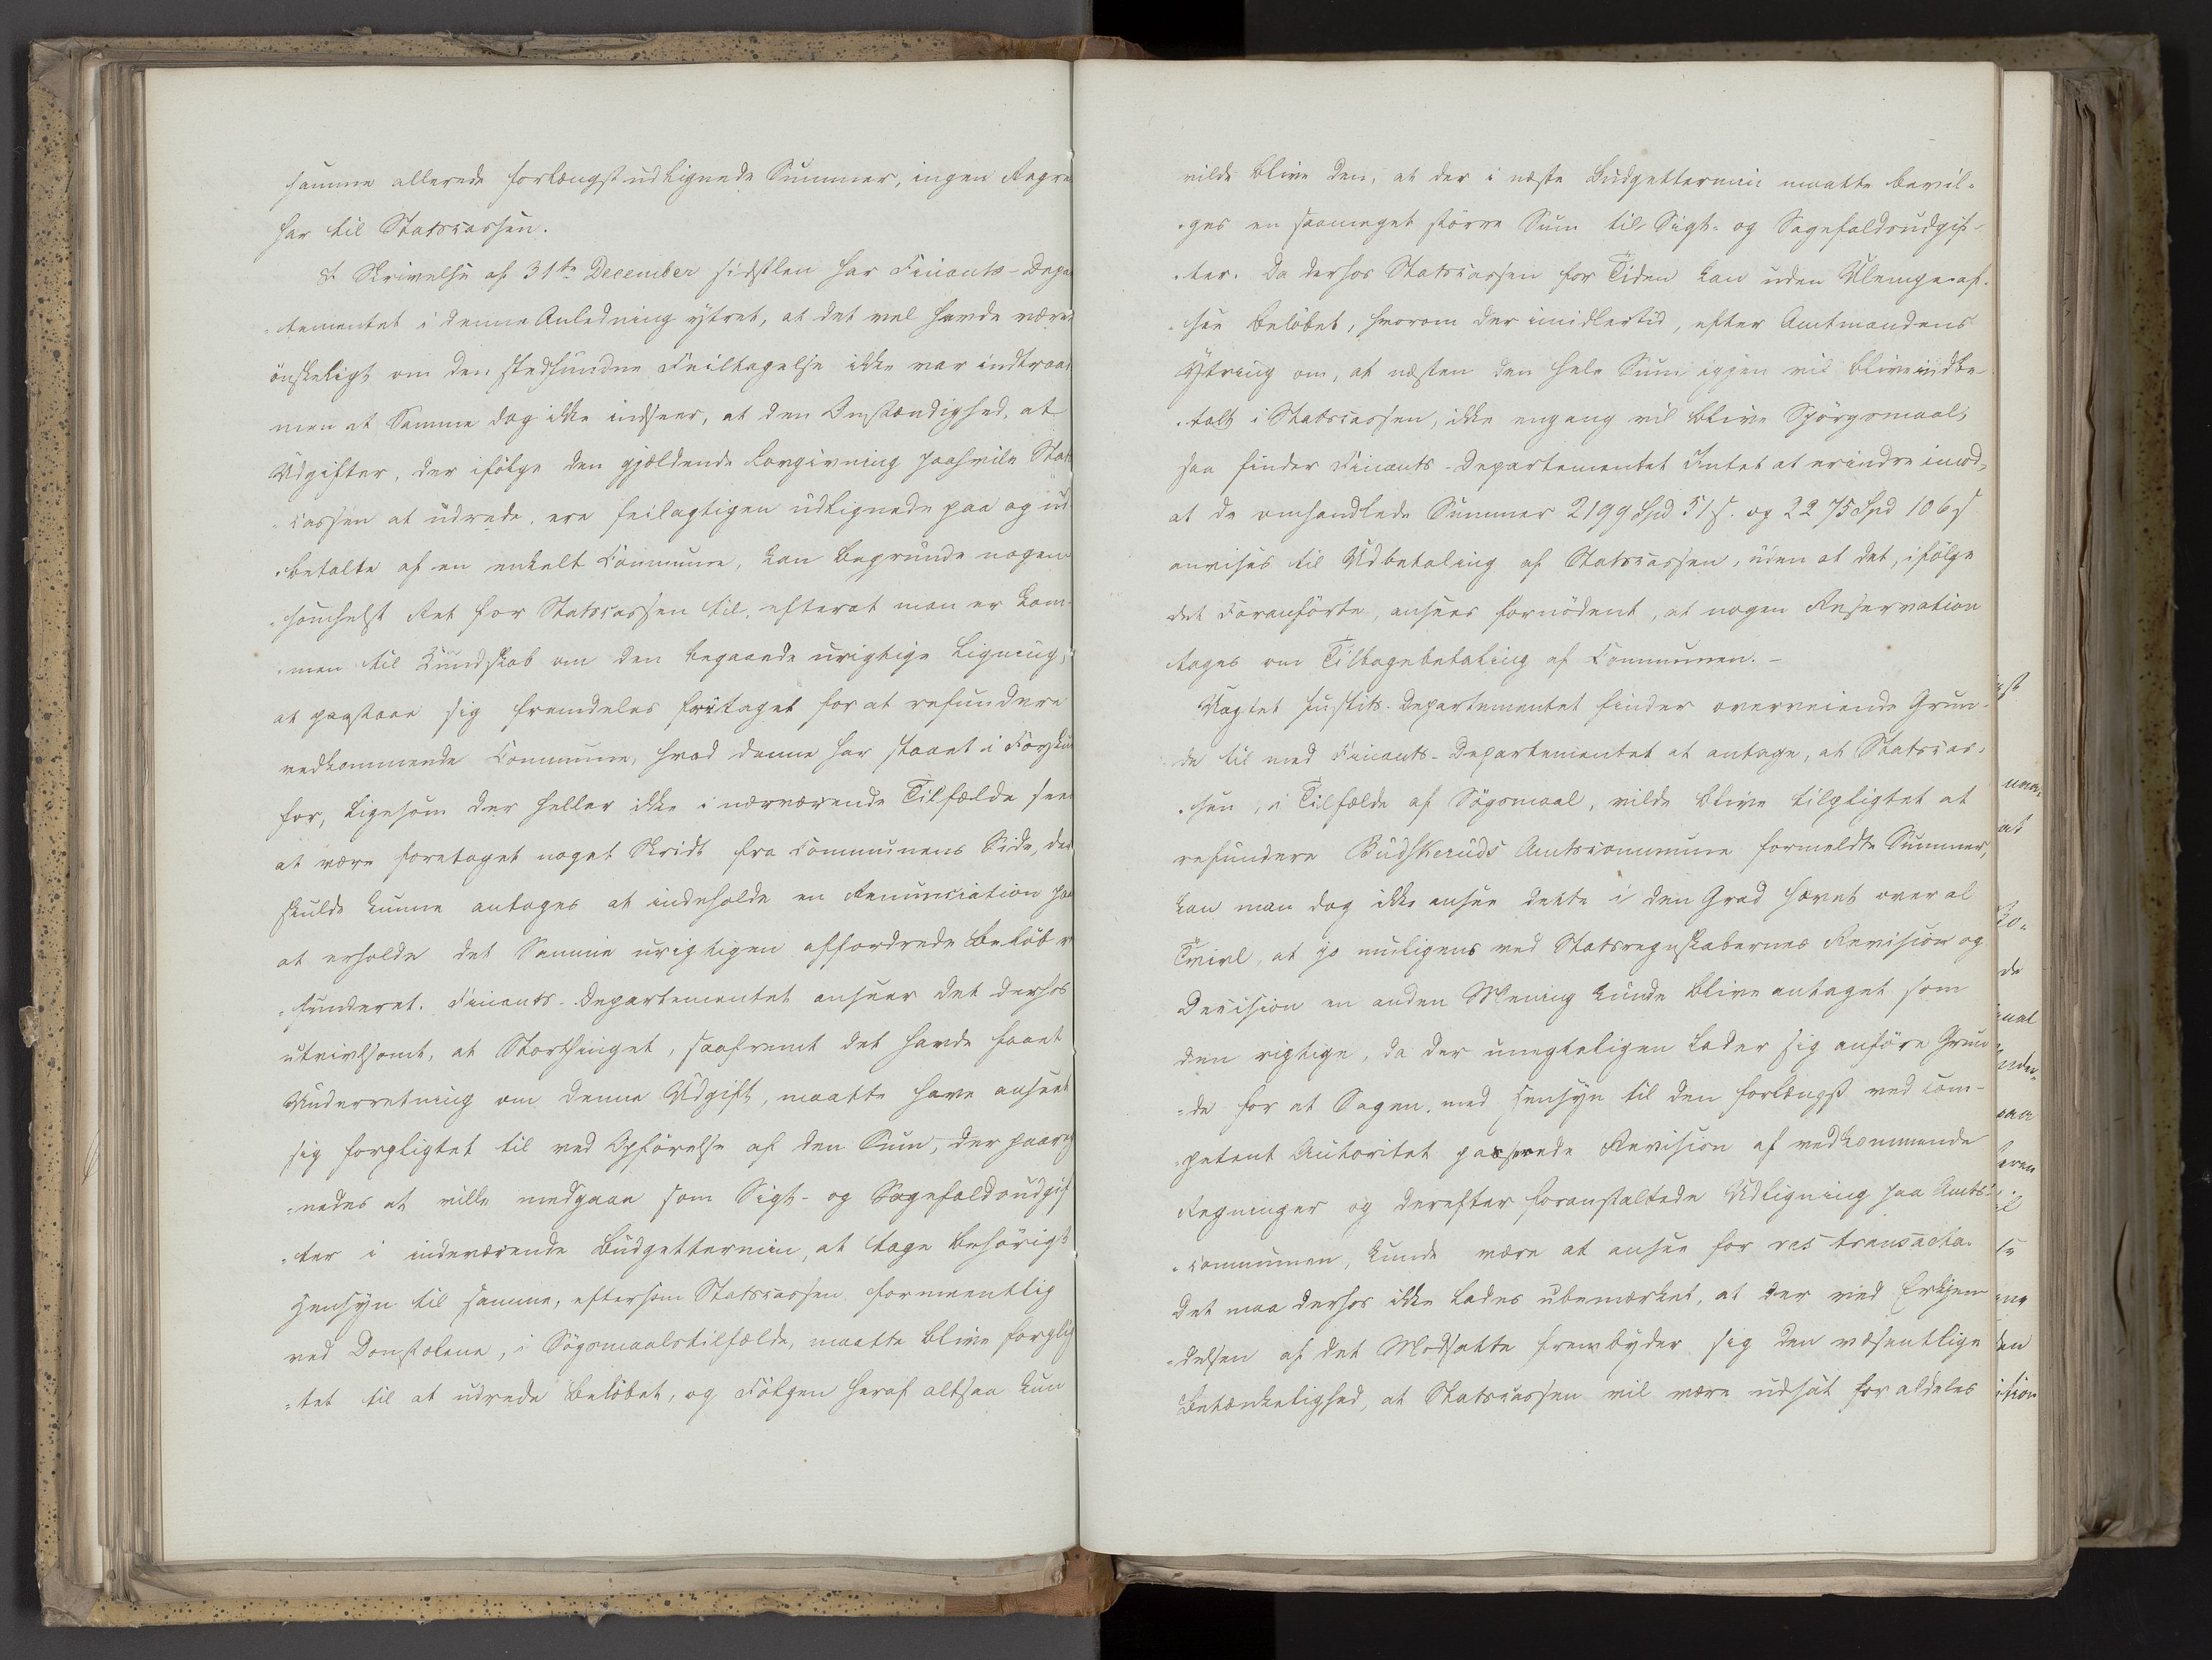 samme allerede forlængst udlignede Summer, ingen Regre
har til Statscassen.
I Skrivelse af 31te December sidstlen har Finants-Depar
-tementet i denne Anledning ytret, at det vel havde være
ønskeligt om den stedfundne Feiltagelse ikke var indtraad
men at Samme dog ikke indseer, at den Omstændighed, at
Udgifter, der ifølge den gjældende Lovgivning paahvile Stats
-cassen at udrede, ere feilagtigen udlignede paa og ud
-betalte af en enkelt Commune, kan begrunde nogen
-somhelst Ret for Statscassen til, efterat man er kom-
-men til Kundskab om den begaaede urigtige Ligning,
at paastaae sig fremdeles fritaget for at refundere
vedkommende Commune, hvad denne har staaet i Forsku
for, ligesom der heller ikke i nærværende Tilfælde sees
at være foretaget noget Skridt fra Communens Side, der
skulde kunne antages at indeholde en Renunciation paa
at erholde det Samme urigtigen affordrede Beløb r
-funderet. Finants-Departementet anseer det derhos
utvivlsomt, at Storthinget, saafremt det havde faaet
Underretning om denne Udgift, maatte have anseet
sig forpligtet til ved Opførelse af den Sum, der paareg
-nedes at ville medgaae som Sigt- og Sagefaldsudgif
-ter i indeværende Budgettermin, at tage behørigt
Hensyn til samme, eftersom Statscassen formeentlig
ved Domstolene, i Søgsmaalstilfælde, maatte blive forplig
-tet til at udrede Beløbet, og Følgen heraf altsaa kun
vilde blive den, at der i næste Budgettermin maatte bevil-
-ges en saameget større Sum til Sigt- og Sagefaldsudgif-
-ter. Da derhos Statscassen for Tiden kan uden Ulempe af-
-see Beløbet, hvorom der imidlertid, efter Amtmandens
Ytring om, at næsten den hele Sum igjen vil blive indbe-
-talt i Statscassen, ikke engang vil blive Spørgsmaal,
saa finder Finants-Departementet Intet at erindre imod,
at de omhandlede Summer 2199 Spd 51 s. og 2275 Spd 106 s
anvises til Udbetaling af Statscassen, uden at det, ifølge
det Foranførte, ansees fornødent, at nogen Reservation
tages om Tilbagebetaling af Communen. -
Uagtet Justits-Departementet finder overveiende Grun-
de til med Finants-Departementet at antage, at Statscas-
-sen, i Tilfælde af Søgsmaal, vilde blive tilpligtet at
refundere Budskeruds Amtscommune formeldte Summer,
kan man dog ikke ansee dette i den Grad hævet over al
Tvivl, at jo muligens ved Statsregnskabernes Revision og
Decision en anden Mening kunde blive antaget som
den rigtige, da der unegteligen lader sig anføre Grun
-de for at Sagen, med Hensyn til den forlængst ved com-
-petent Autoritet passerede Revision af vedkommende
Regninger og derefter foranstaltede Udligning paa Amts-
-communen, kunde være at ansee for res transacta.
Det maa derhos ikke lades ubemærket, at der ved Erkjen-
-delsen af det Modsatte frembyder sig den væsentlige
Betænkelighed, at Statscassen vil være udsat for aldeles